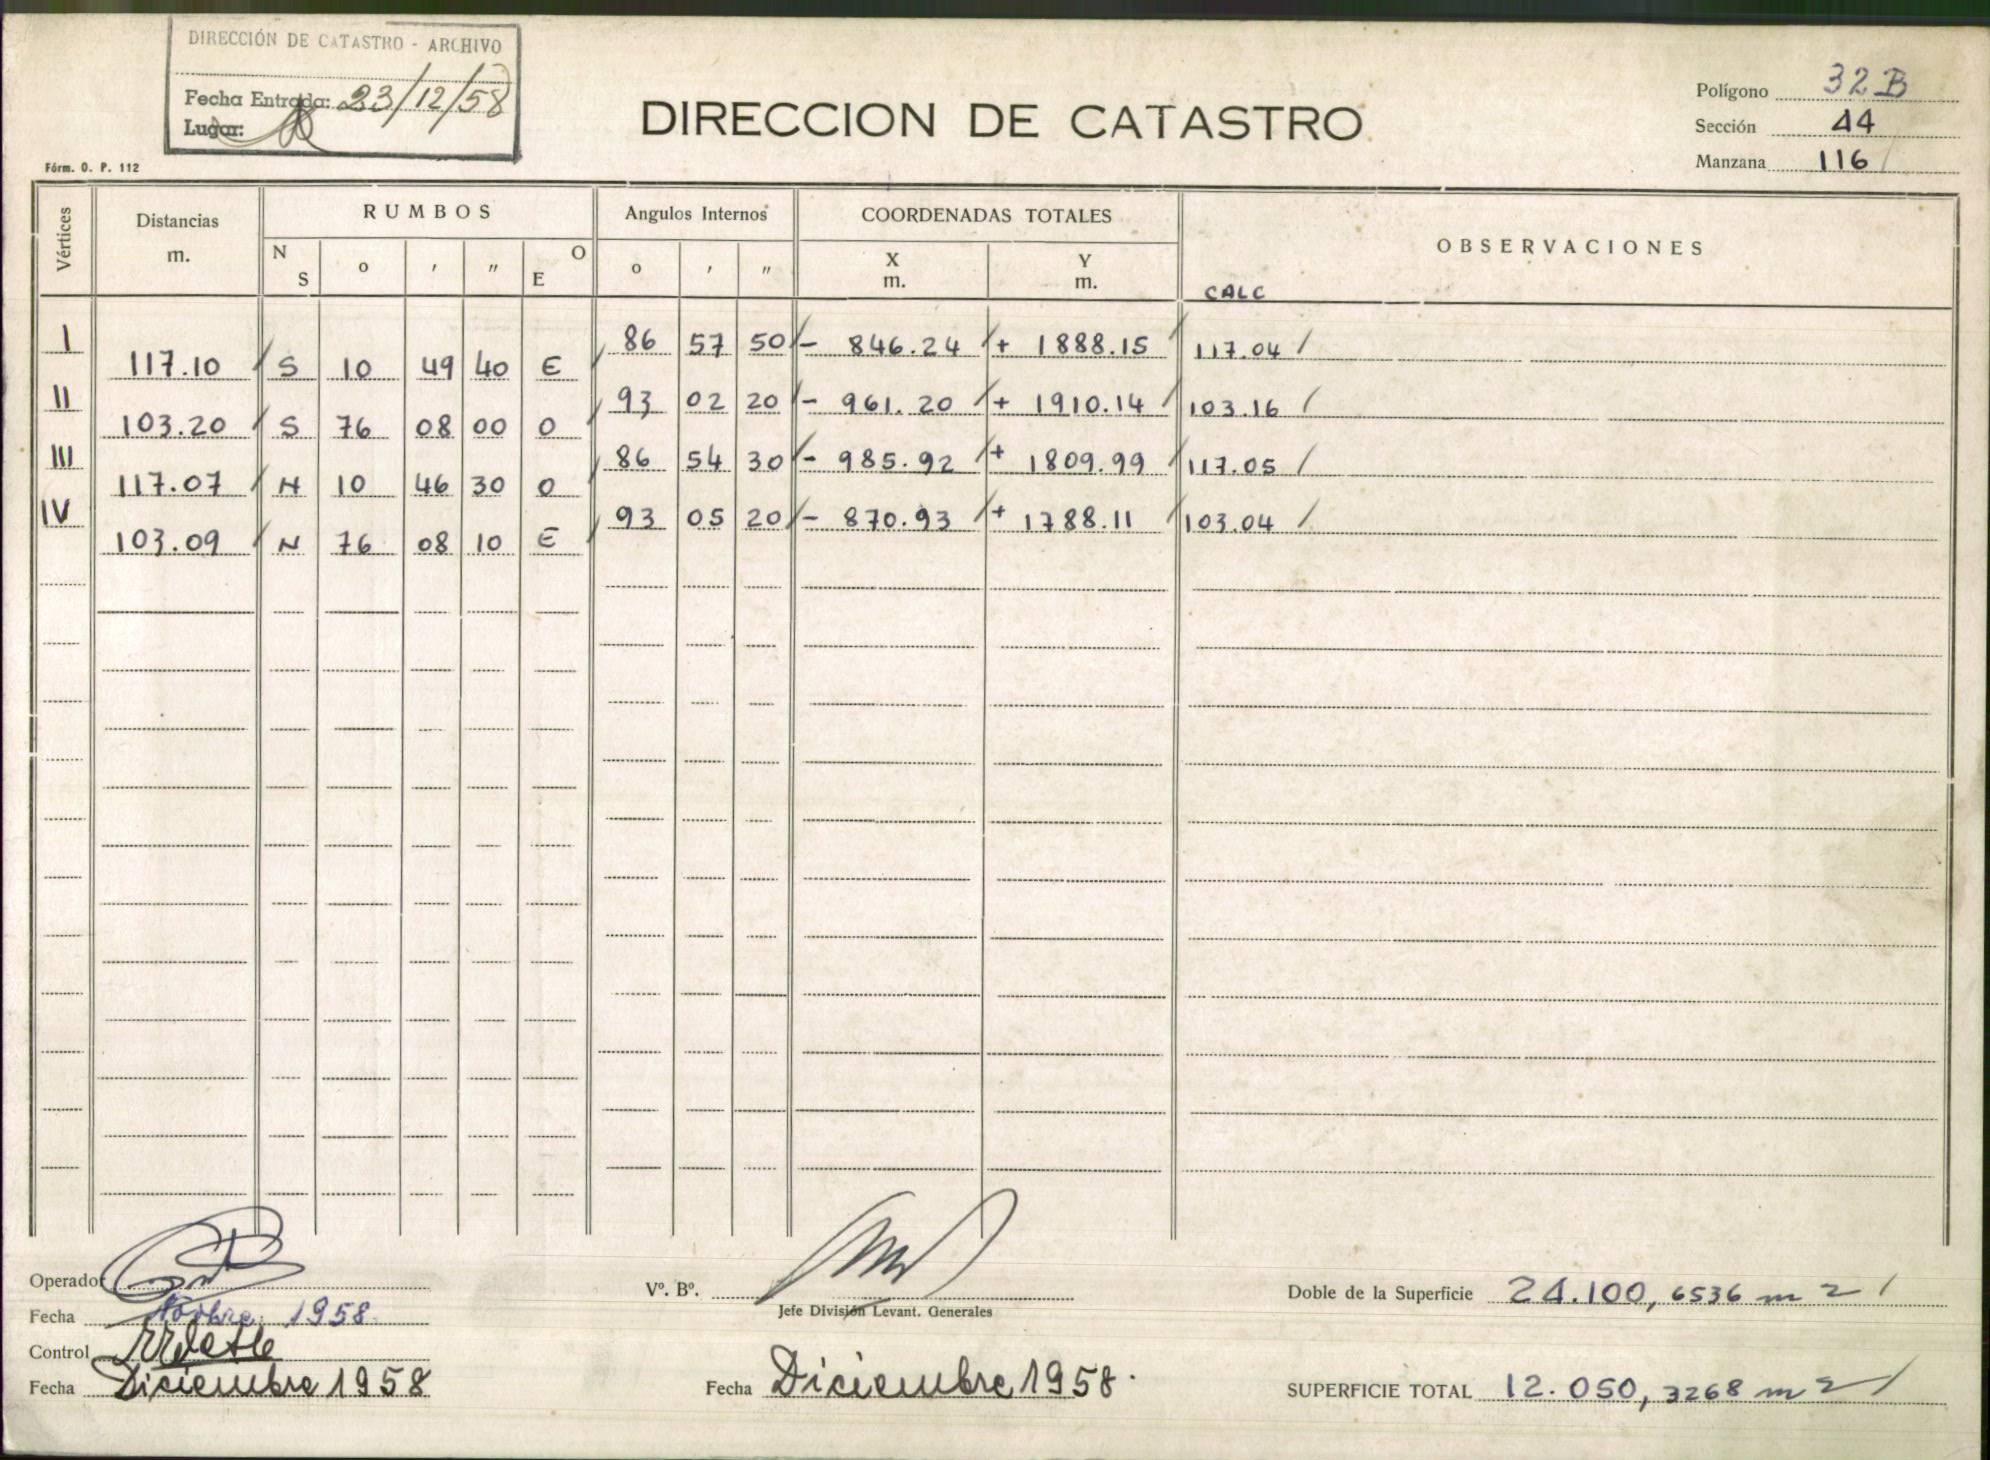 DIRECCIÓN DE CATASTRO - ARCHIVO
Fecha Entrada: 23/12/58
Lugar:
DIRECCION DE CATASTRO
Polígono 32B
Sección 44
Manzana 116
Fórm. O. P. 112
Vértices Distancias m. RUMBOS Angulos Internos COORDENADAS TOTALES OBSERVACIONES
N S o ′ ″ O E o ′ ″ X m. Y m. CALC
I 86 57 50 - 846.24 + 1888.15 117.04
117.10 S 10 49 40 E
II 93 02 20 - 961.20 + 1910.14 103.16
103.20 S 76 08 00 O
III 86 54 30 - 985.92 + 1809.99 117.05
117.07 N 10 46 30 O
IV 93 05 20 - 870.93 + 1788.11 103.04
103.09 N 76 08 10 E
Operador
Fecha Novbre. 1958.
Control
Fecha Diciembre 1958
Vº. Bº.
Jefe División Levant. Generales
Fecha Diciembre 1958.
Doble de la Superficie 24.100,6536 m2
SUPERFICIE TOTAL 12.050,3268 m2